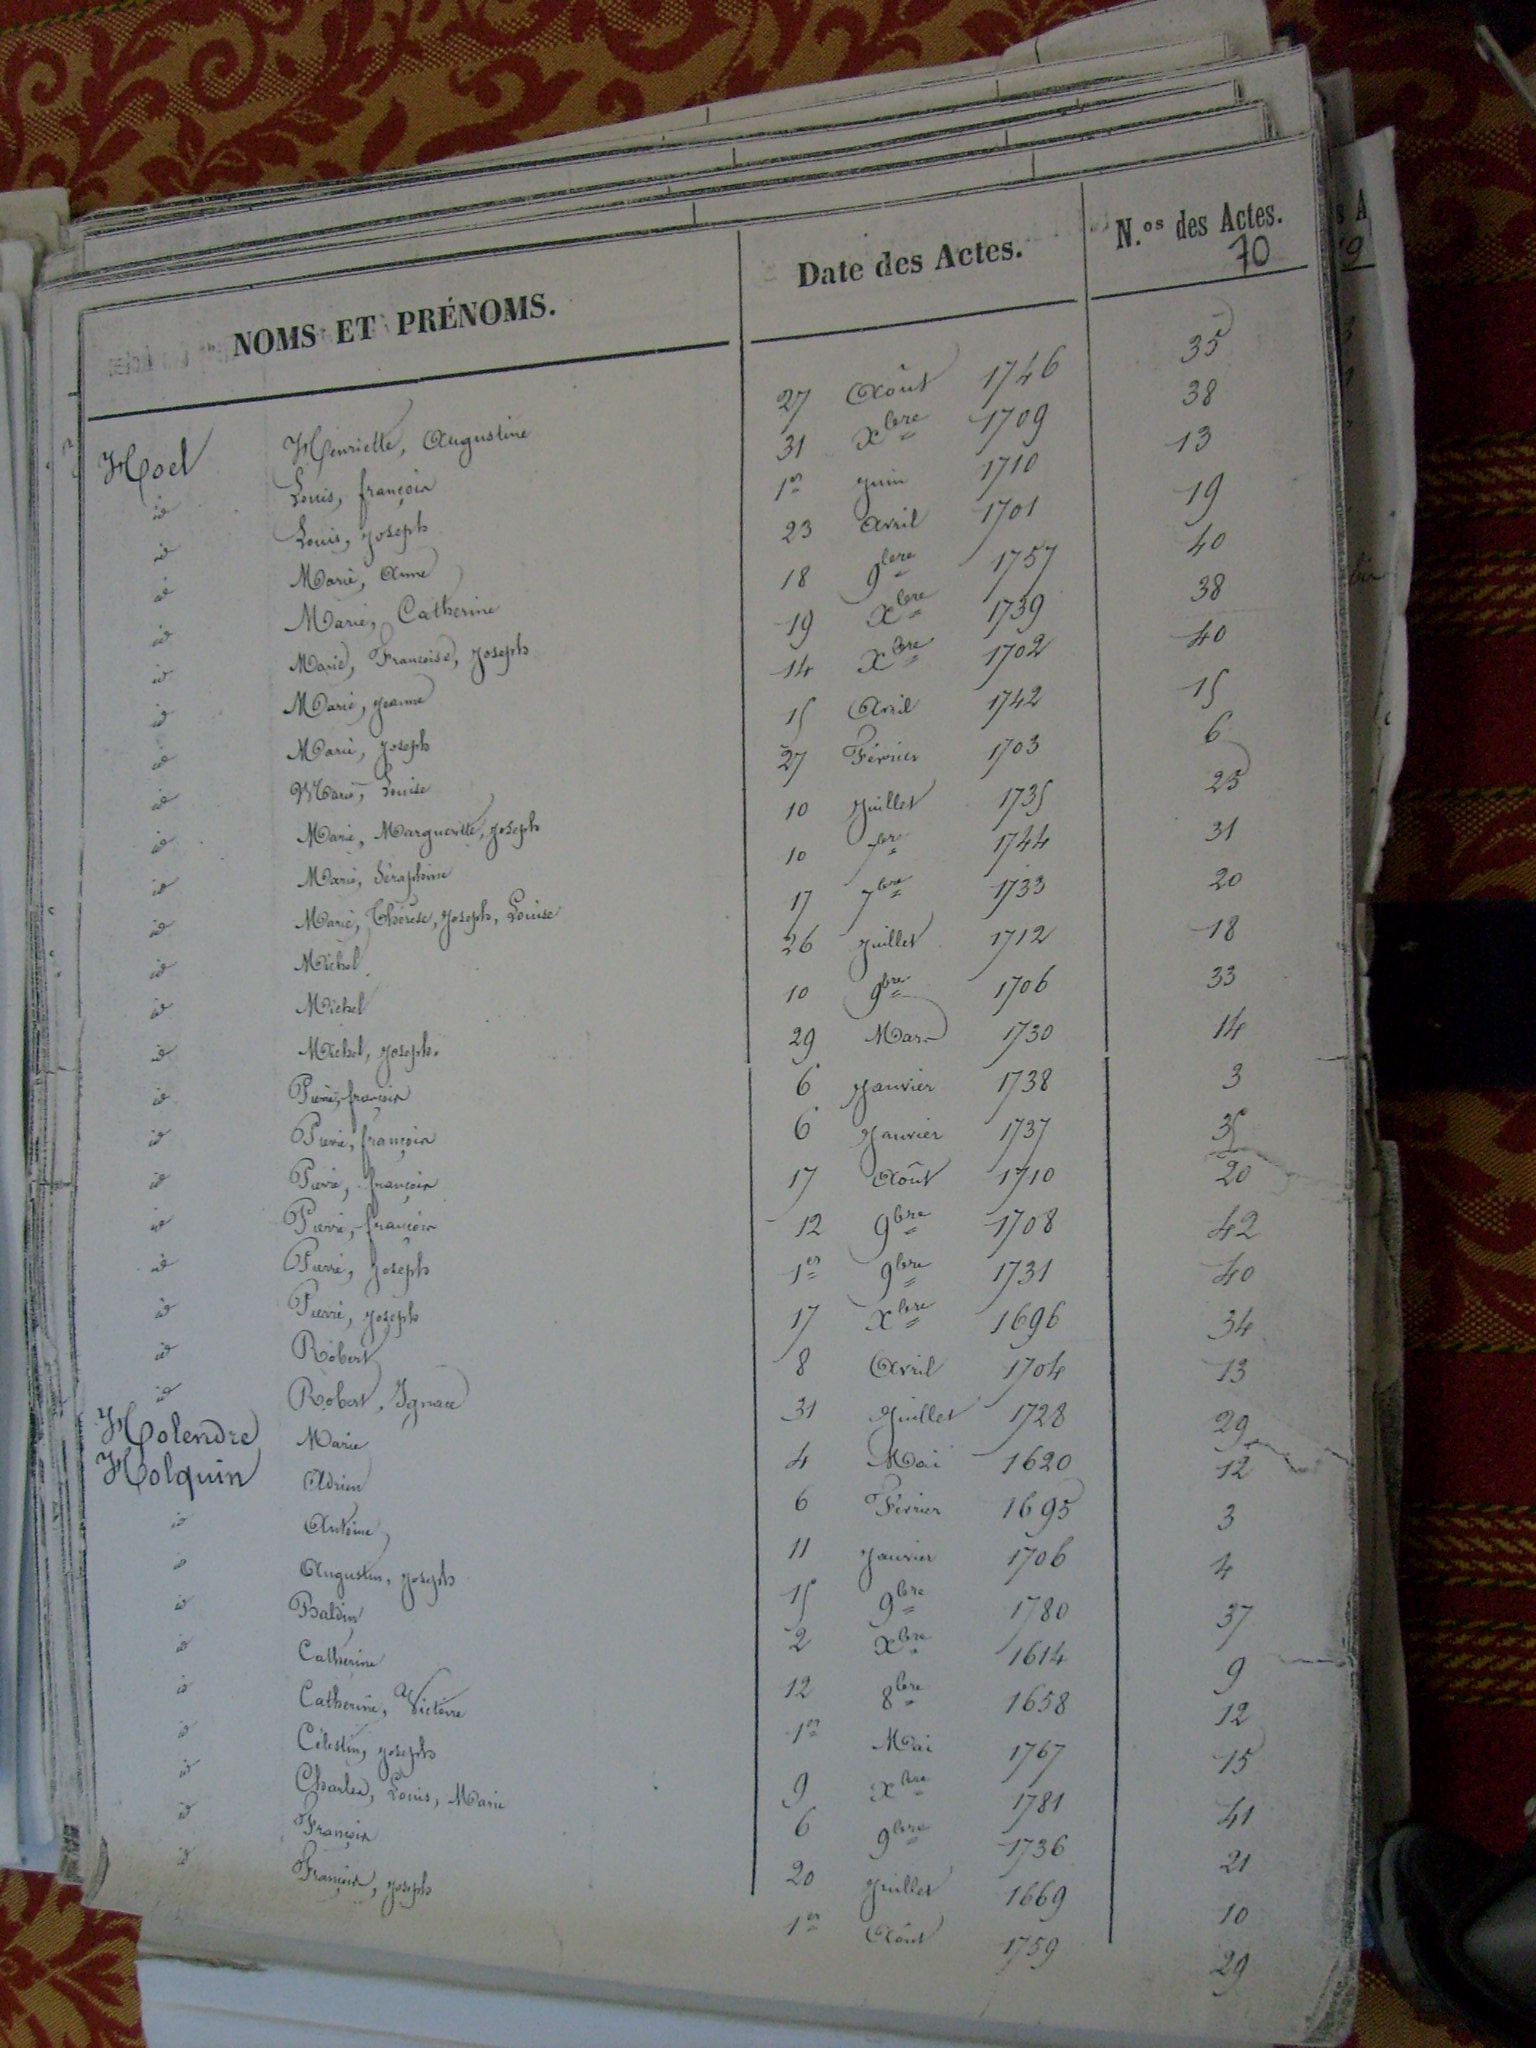 NOMS ET PRÉNOMS. Date des Actes. N.os des Actes.
70
Hoel Henriette, Augustine 27 Août 1746 35
id Louis, françois 31 Xbre 1709 38
id Louis, joseph 1er juin 1710 13
id Marie, Anne 23 Avril 1701 19
id Marie, Catherine 18 9bre 1757 40
id Marie, Françoise, joseph 19 Xbre 1739 38
id Marie, jeanne 14 Xbre 1702 40
id Marie, joseph 15 Avril 1742 15
id Marie, Louise 27 Février 1703 6
id Marie, Marguerite, joseph 10 juillet 1735 25
id Marie, Séraphine 10 7bre 1744 31
id Marie, Thérèse, joseph, Louise 17 7bre 1733 20
id Michel 26 juillet 1712 18
id Michel 10 9bre 1706 33
id Michel, joseph. 29 Mars 1730 14
id Pierre, françois 6 janvier 1738 3
id Pierre, françois 6 janvier 1737 35
id Pierre, françois 17 Août 1710 20
id Pierre, françois 12 9bre 1708 42
id Pierre, joseph 1er 9bre 1731 40
id Pierre, joseph 17 Xbre 1696 34
id Robert 8 Avril 1704 13
id Robert, Ignace 31 juillet 1728 29
Holendre Marie 4 Mai 1620 12
Holquin Adrien 6 Février 1695 3
id Antoine 11 janvier 1706 4
id Augustin, joseph 15 9bre 1780 37
id Baldin 2 Xbre 1614 9
id Catherine 12 8bre 1658 12
id Catherine, Victoire 1er Mai 1767 15
id Célestin, joseph 9 Xbre 1781 41
id Charles, Louis, Marie 6 9bre 1736 21
id François 20 juillet 1669 10
id François, joseph 1er Août 1759 29